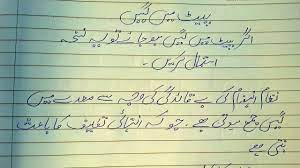 پیٹ میں گیس
اگر پیٹ میں گیس ہو جائے تو یہ نسخہ
استعمال کریں۔
نظام انہضام کی بے قاعدگی کی وجہ سے معدے میں
گیس جمع ہوتی ہے۔ جو کہ انتہائی تکلیف کا باعث
بنتی ہے